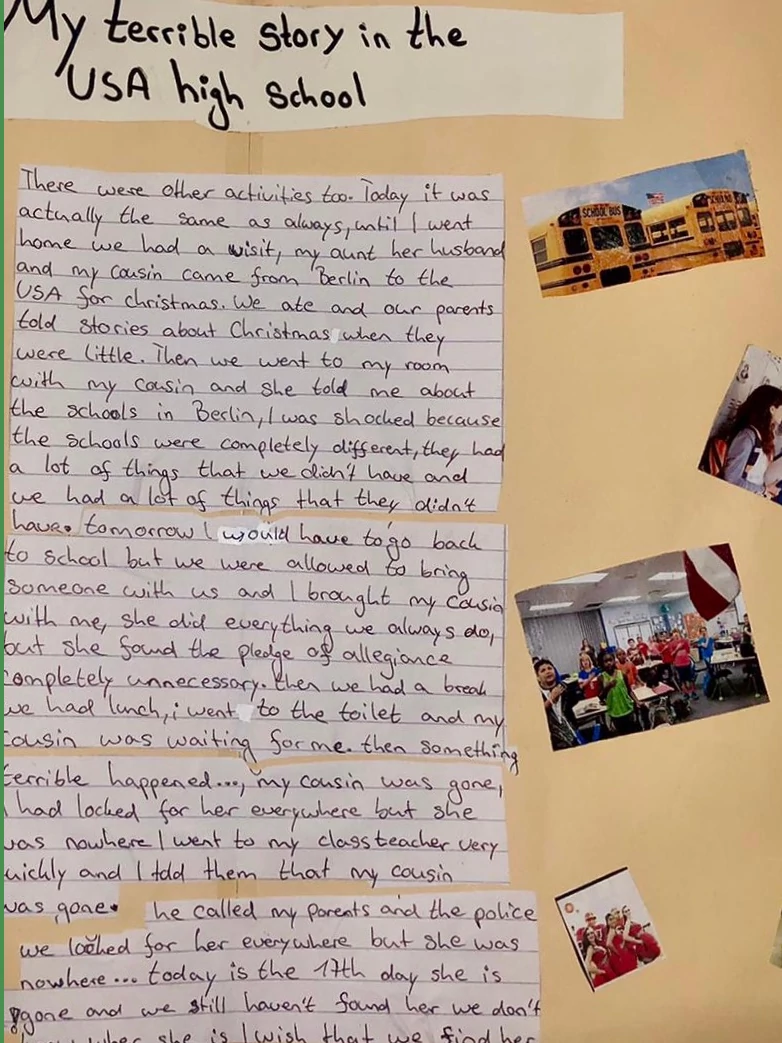 My terrible story in the
USA high school
There were other activities too. Today it was
actually the same as always, until I went
home we had a wisit, my aunt her husband
and my cousin came from Berlin to the
USA for christmas. We ate and our parents
told stories about Christmas when they
were little. Then we went to my room
with my cousin and she told me about
the schools in Berlin, I was shocked because
the schools were completely different, they had
a lot of things that we didn't have and
we had a lot of things that they didn't
have. tomorrow I would have to go back
to school but we were allowed to bring
someone with us and I brought my cousin
with me, she did everything we always do,
but she found the pledge of allegiance
completely unnecessary. then we had a break
we had lunch, i went to the toilet and my
cousin was waiting for me. then something
terrible happened..., my cousin was gone,
I had locked for her everywhere but she
was nowhere I went to my classteacher very
quickly and I told them that my cousin
was gone. he called my parents and the police
we looked for her everywhere but she was
nowhere... today is the 17th day she is
gone and we still haven't found her we don't
she is I wish that we find her
SCHOOL BUS